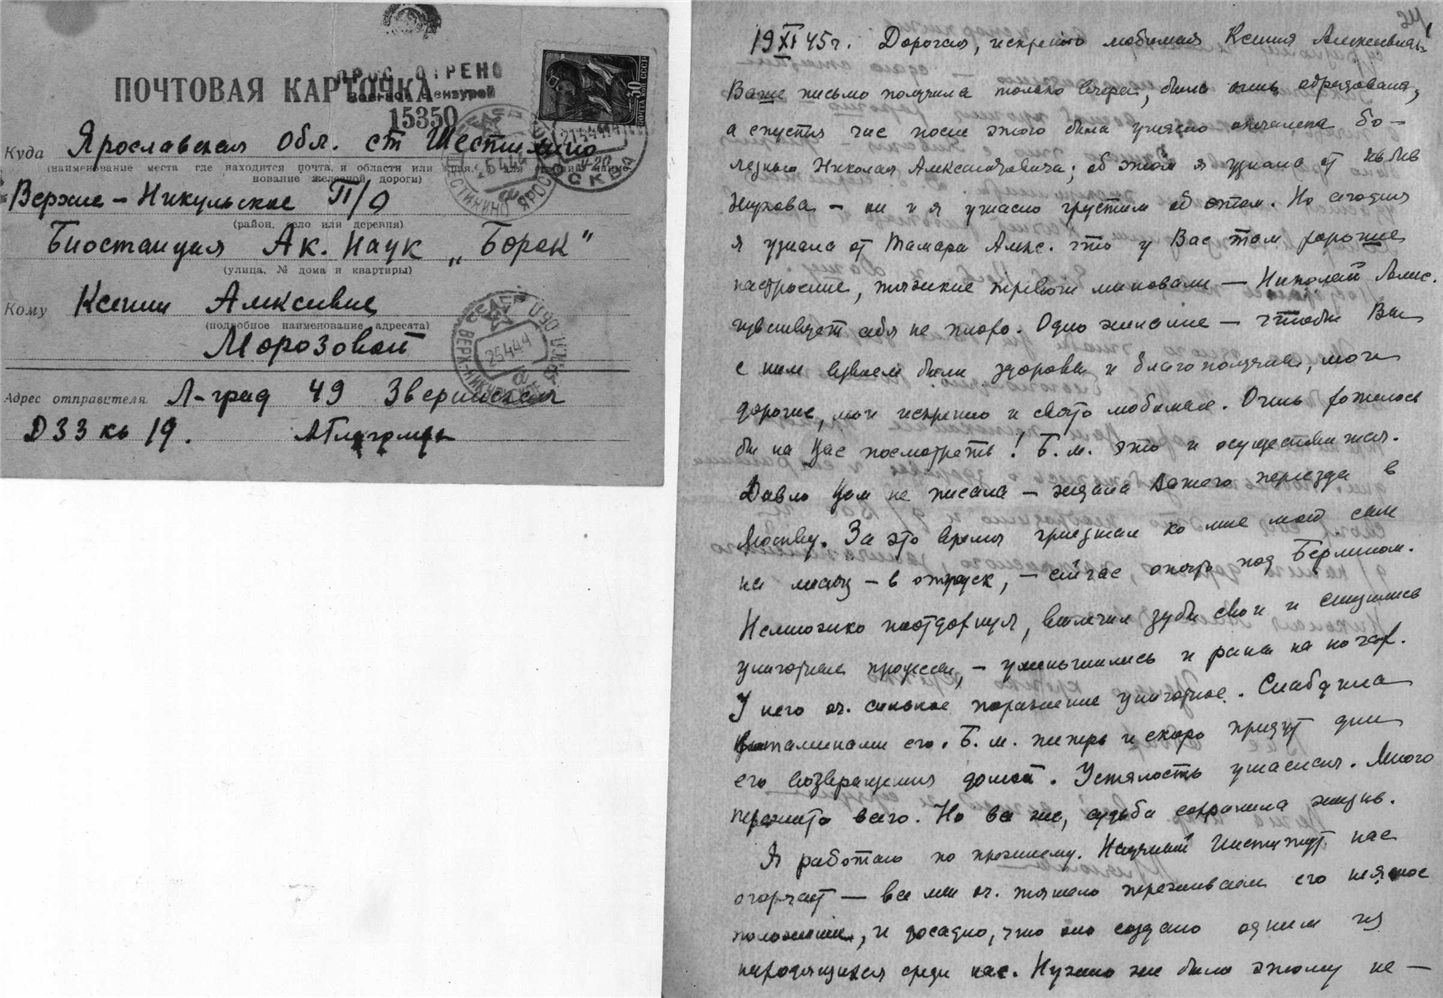 ПОЧТОВАЯ КАРТОЧКА
ПРОСМОТРЕНО
Военной Цензурой
15350
Куда Ярославская обл. ст Шестихино
(наименование места где находится почта, и области или края,
нование железной дороги)
Верхне-Никульское П/О
(район, село или деревня)
Биостанция Ак. Наук „Борок"
(улица, № дома и квартиры)
Кому Ксении Алексеевне
(подробное наименование адресата)
Морозовой
Адрес отправителя Л-град 49 Зверинская
Д 33 кв 19.
19 XI 45 г. Дорогая, искренно любимая Ксения Алексеевна
Ваше письмо получила только вчера, была очень обрадована,
а спустя час после этого была ужасно опечалена бо-
лезнью Николая Александровича; об этом я узнала от
Жукова – он и я ужасно грустим об этом. Но сегодня
я узнала от Тамары Алекс. что у Вас там хорошее
настроение, тяжкие тревоги миновали — Николай Алекс.
чувствует себя не плохо. Одно желание — чтобы Вы
с ним вдвоем были здоровы и благополучны, мои
дорогие, мои искренно и свято любимые. Очень хотелось
бы на Вас посмотреть! Б.м. это и осуществимо.
Давно Вам не писала – ждала Вашего переезда в
Москву. За это время приезжал ко мне мой сын
на месяц – в отпуск, – сейчас опять под Берлином.
Немножко поотдохнул, вылечил зубы свои и
цинготные процессы, – уменьшились и раны на ногах.
У него оч. сильное поражение цинготное. Снабдила
витаминами его. Б.м. теперь и скоро придут дни
его возвращения домой. Усталость ужасная. Много
пережито всего. Но все же, судьба сохранила жизнь.
Я работаю по прежнему. Научный Институт нас
огорчает — все мы оч. тяжело переживаем его неясное
положение, и досадно, что оно создано одним из
находящихся среди нас. Нужно же было этому не —